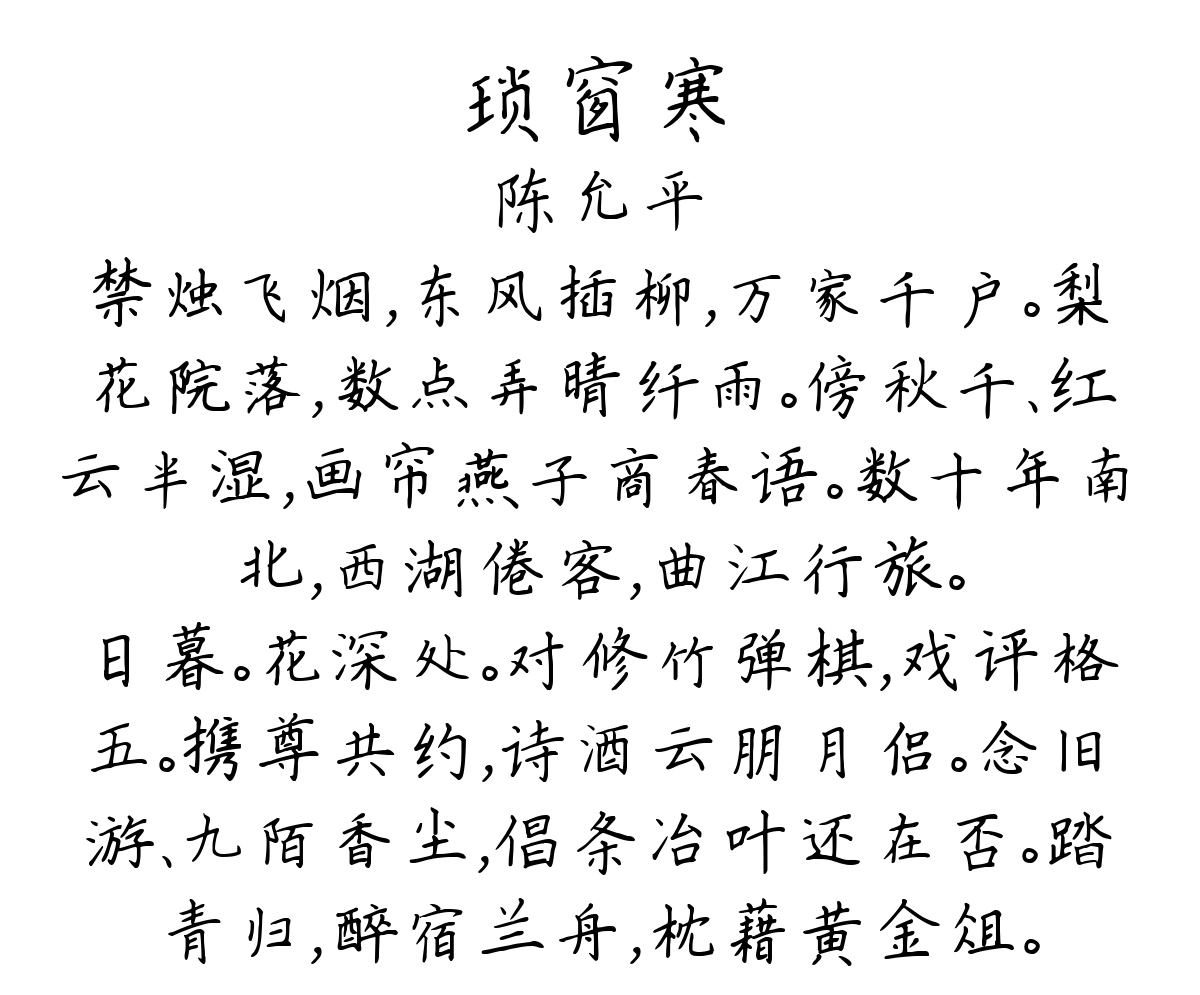 琐窗寒
陈允平
禁烛飞烟,东风插柳,万家千户。梨
花院落,数点弄晴纤雨。傍秋千、红
云半湿,画帘燕子商春语。数十年南
北,西湖倦客,曲江行旅。
日暮。花深处。对修竹弹棋,戏评格
五。携尊共约,诗酒云朋月侣。念旧
游、九陌香尘,倡条冶叶还在否。踏
青归,醉宿兰舟,枕藉黄金俎。